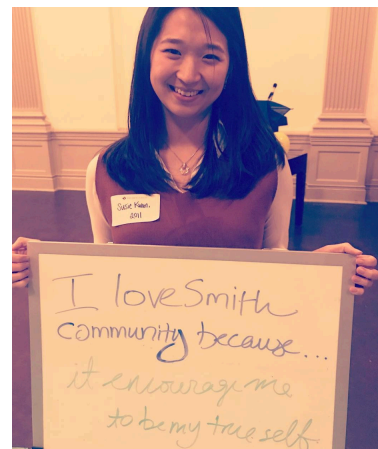 Susie
2011
I love Smith
Community because...
it encourage me
to be my true self